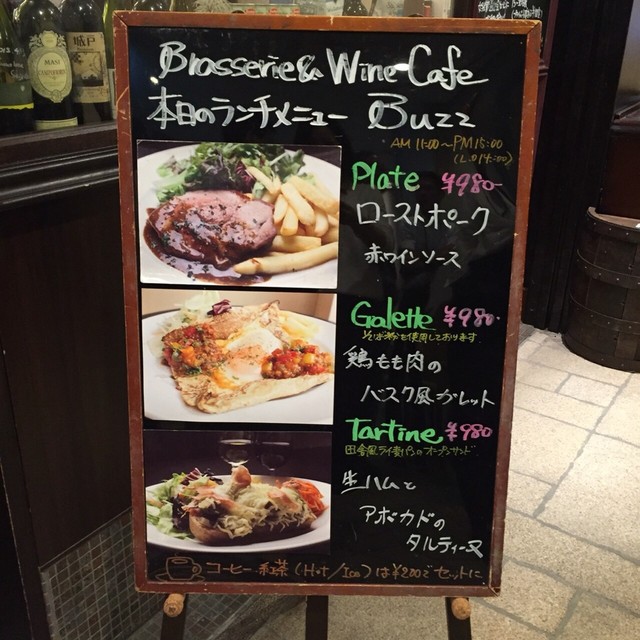 Brasserie & Wine Cafe
本日のランチメニュー Buzz
AM 11:00～PM 15:00
(L.O 14:00)
Plate ¥980-
ローストポーク
赤ワインソース
Galette ¥980-
そば粉を使用しております
鶏もも肉の
バスク風ガレット
Tartine ¥980
田舎風ライ麦パンのオープンサンド
生ハムと
アボカドの
タルティーヌ
コーヒー・紅茶 (Hot/Ice) は¥200でセットに
MASI
城戸